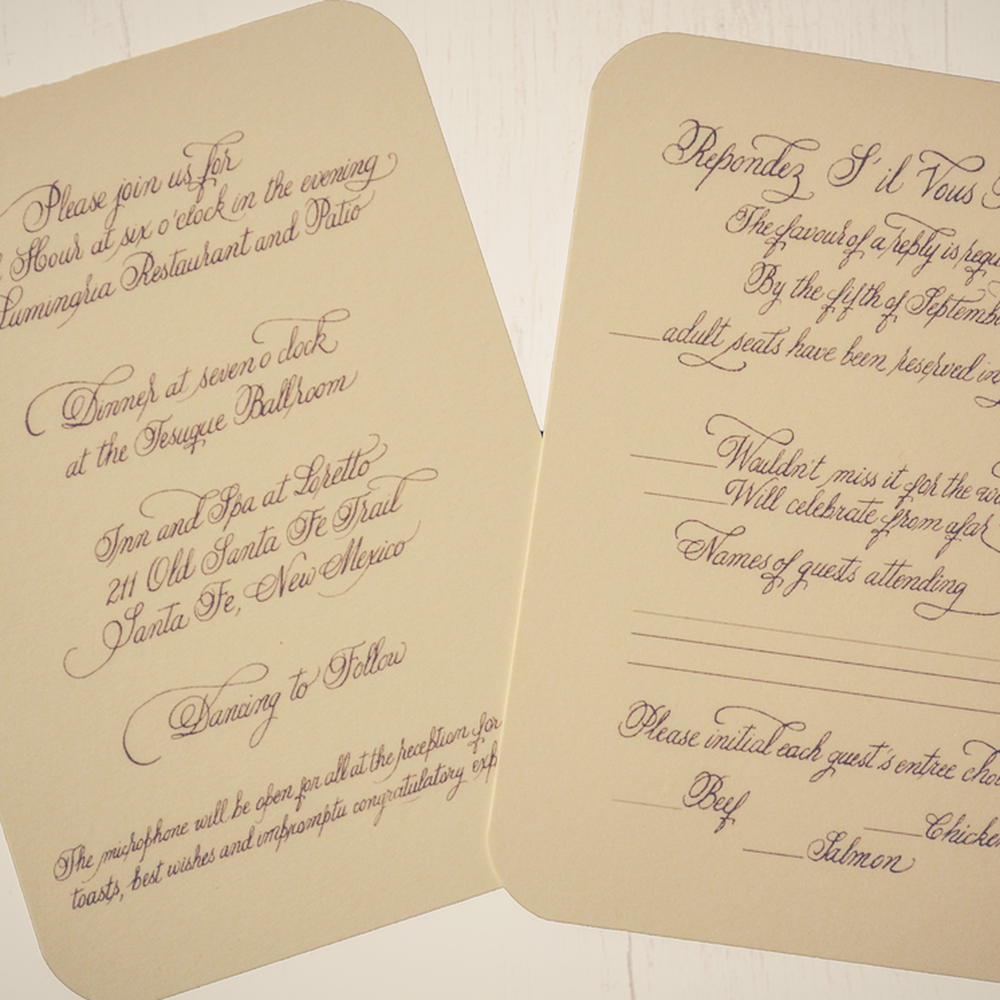 Please join us for
Hour at six o'clock in the evening
Luminaria Restaurant and Patio
Dinner at seven o'clock
at the Tesuque Ballroom
Inn and Spa at Loretto
211 Old Santa Fe Trail
Santa Fe, New Mexico
Dancing to Follow
The microphone will be open for all at the reception for
toasts, best wishes and impromptu congratulatory exp
Repondez S'il Vous
The favour of a reply is requ
By the fifth of Septemb
adult seats have been reserved in
Wouldn't miss it for the wo
Will celebrate from afar
Names of guests attending
Please initial each guest's entree cho
Beef
Chicken
Salmon